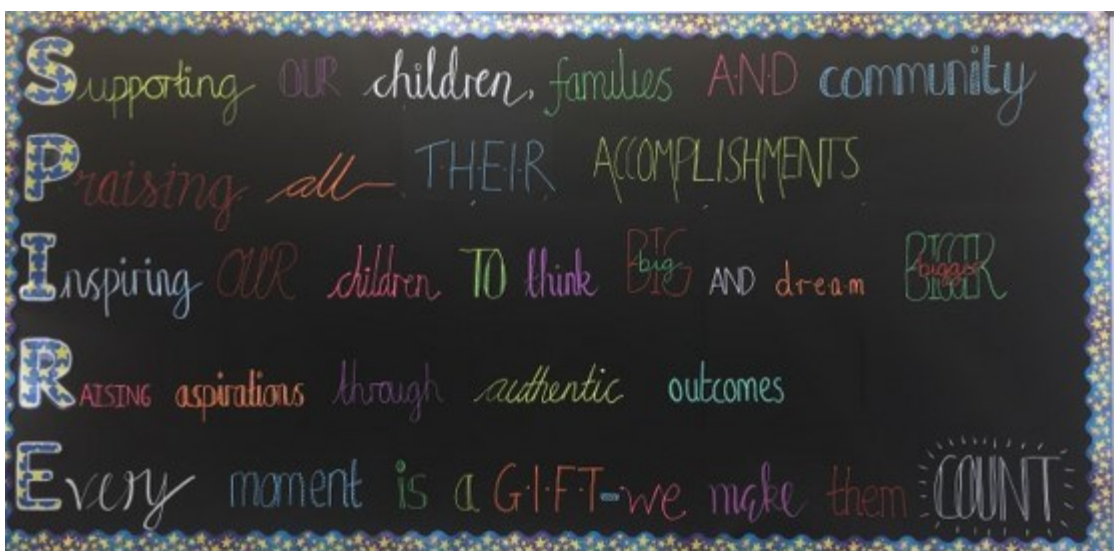 Supporting OUR children, families AND community
Praising all THEIR ACCOMPLISHMENTS
Inspiring OUR children TO think BIG big AND dream BIGGER bigger
RAISING aspirations through authentic outcomes
Every moment is a G·I·F·T-we make them COUNT